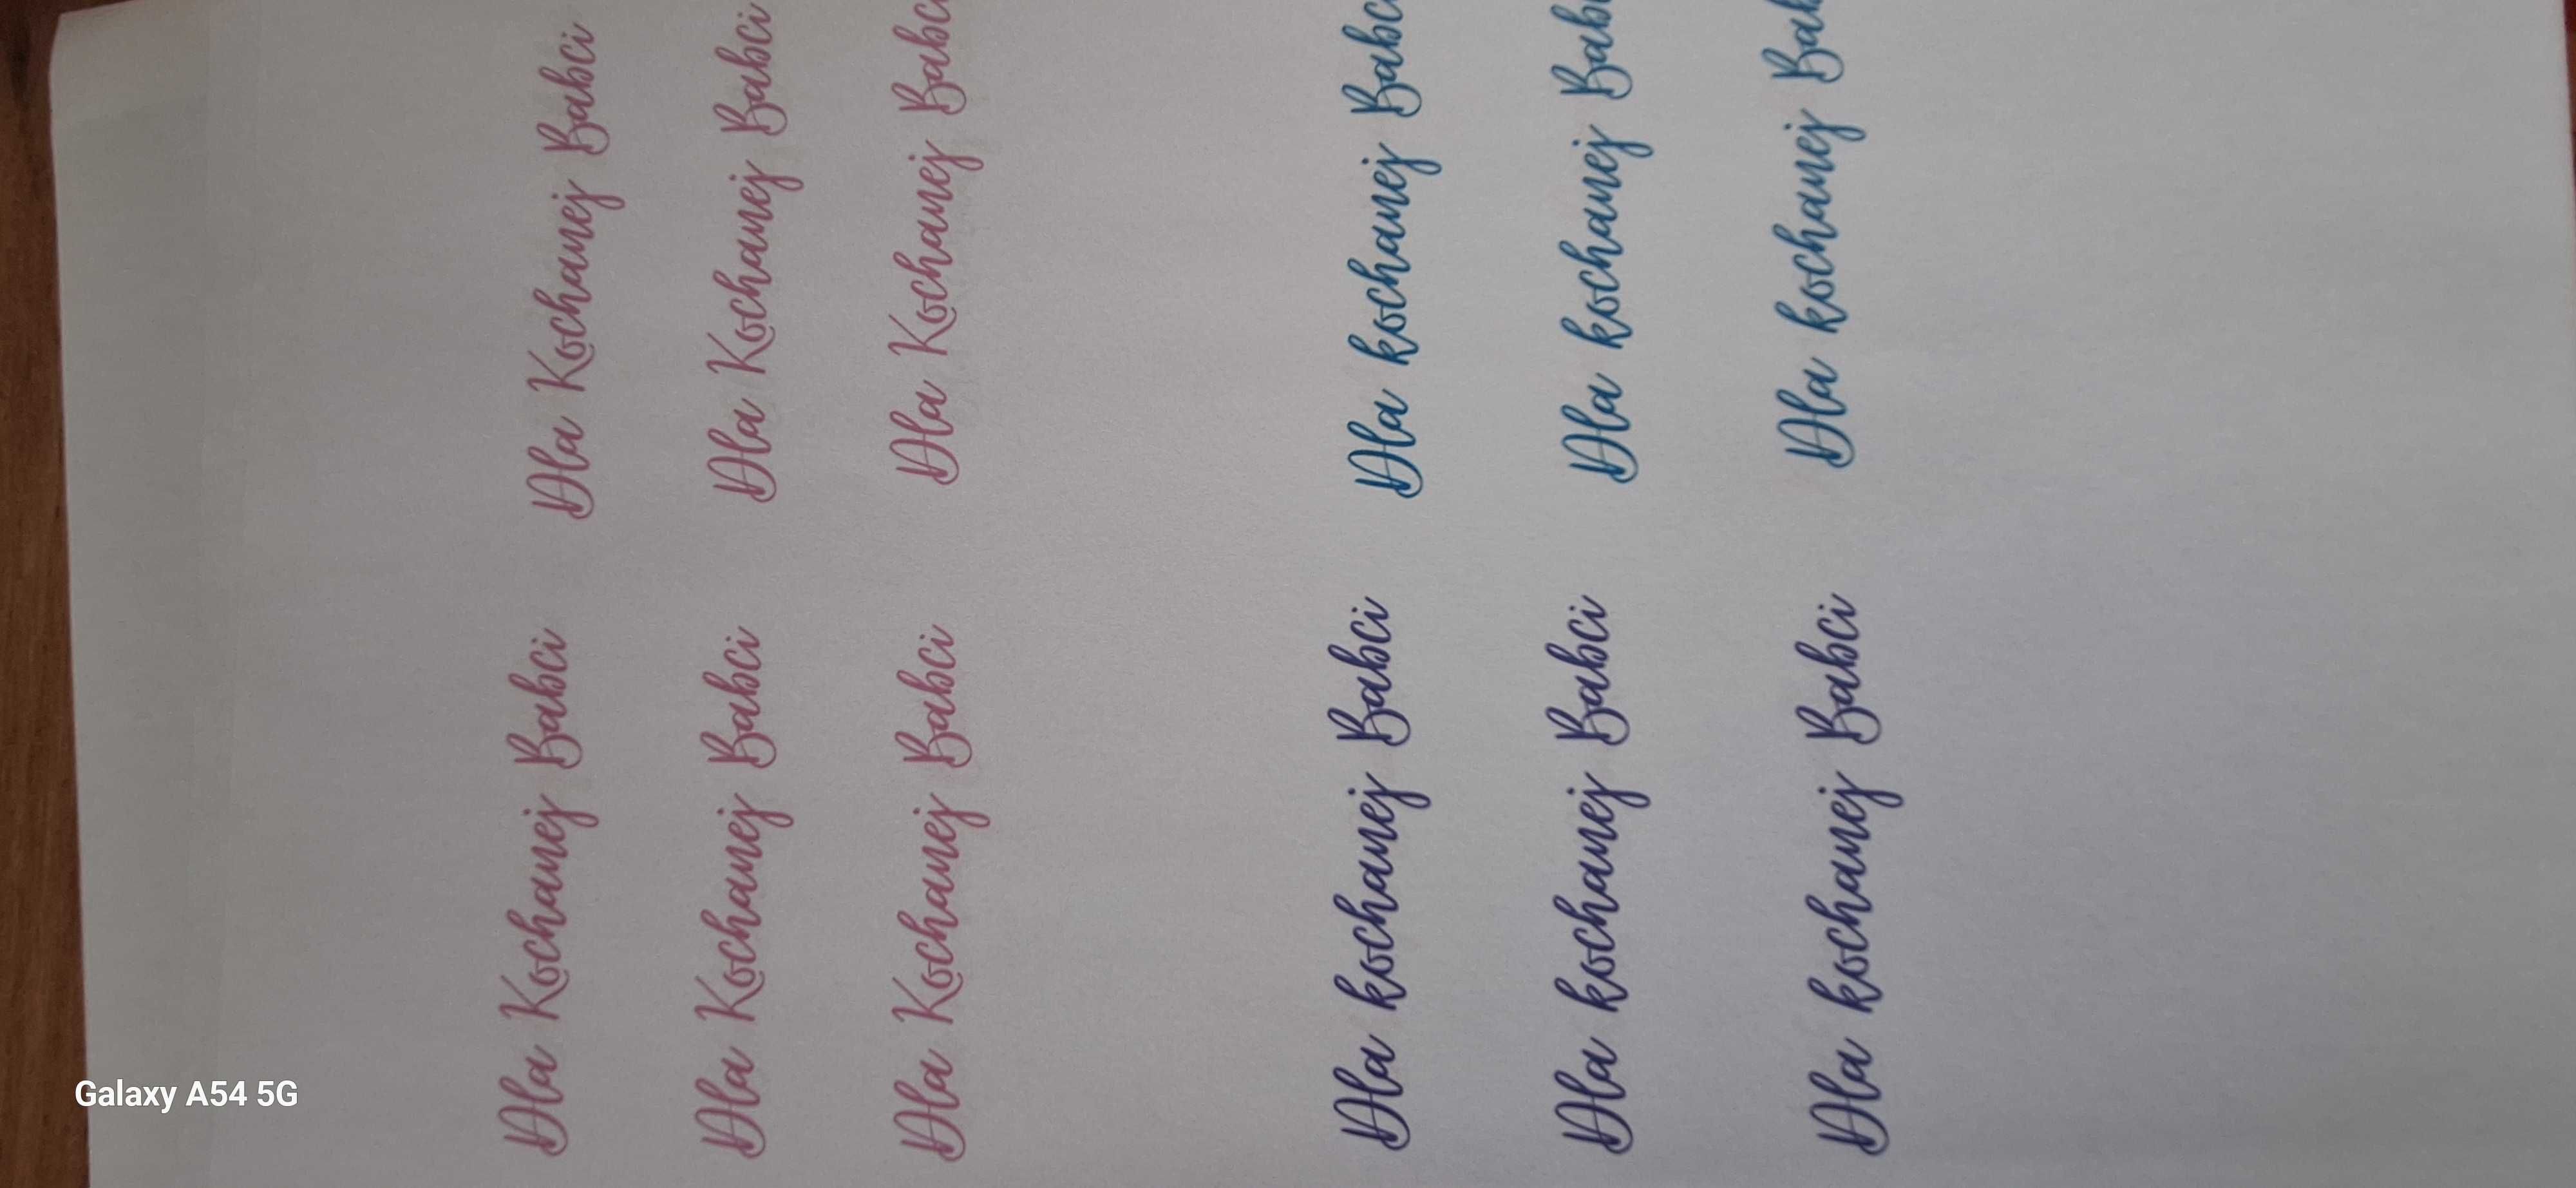 Dla Kochanej Babci Dla Kochanej Babci
Dla Kochanej Babci Dla Kochanej Babci
Dla Kochanej Babci Dla Kochanej Babc
Dla kochanej Babci Dla kochanej Babc
Dla kochanej Babci Dla kochanej Bab
Dla kochanej Babci Dla kochanej Bab
Galaxy A54 5G